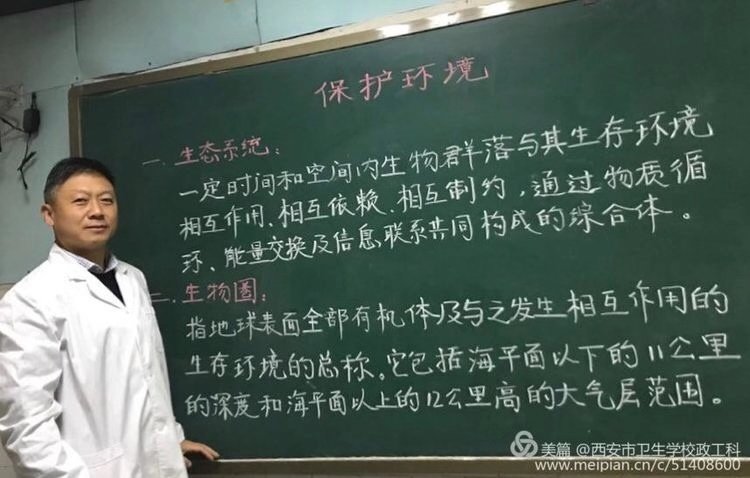 保护环境
一.生态系统：
一定时间和空间内生物群落与其生存环境
相互作用、相互依赖、相互制约，通过物质循
环、能量交换及信息联系共同构成的综合体。
二.生物圈：
指地球表面全部有机体及与之发生相互作用的
生存环境的总称。它包括海平面以下的11公里
的深度和海平面以上的12公里高的大气层范围。
美篇 @西安市卫生学校政工科
www.meipian.cn/c/51408600